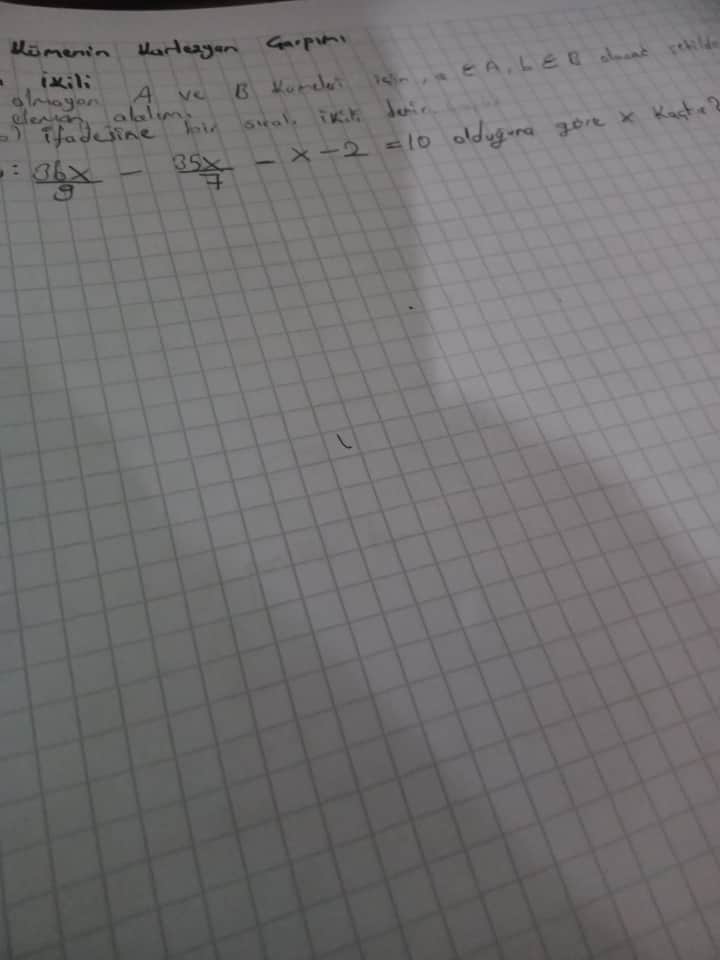 Kümenin Kartezyan Çarpımı
ikili
olmayan A ve B kümeleri için, a ∈ A, b ∈ B olacak şekilde
eleman alalım.
b) ifadesine bir sıralı ikili denir.
: 36x/9 - 35x/7 - x - 2 = 10 olduğuna göre x kaçtır?